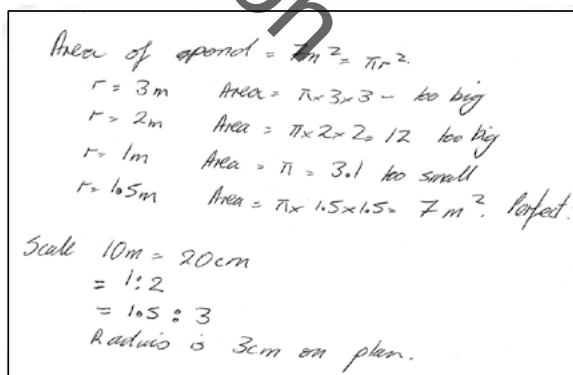 on
Area of opond = 7m² = πr².
r = 3m Area = π×3×3 - too big
r = 2m Area = π×2×2 = 12 too big
r = 1m Area = π = 3.1 too small
r = 1.5m Area = π×1.5×1.5 = 7m². Perfect.
Scale 10m = 20cm
= 1:2
= 1.5 : 3
Radius is 3cm on plan.